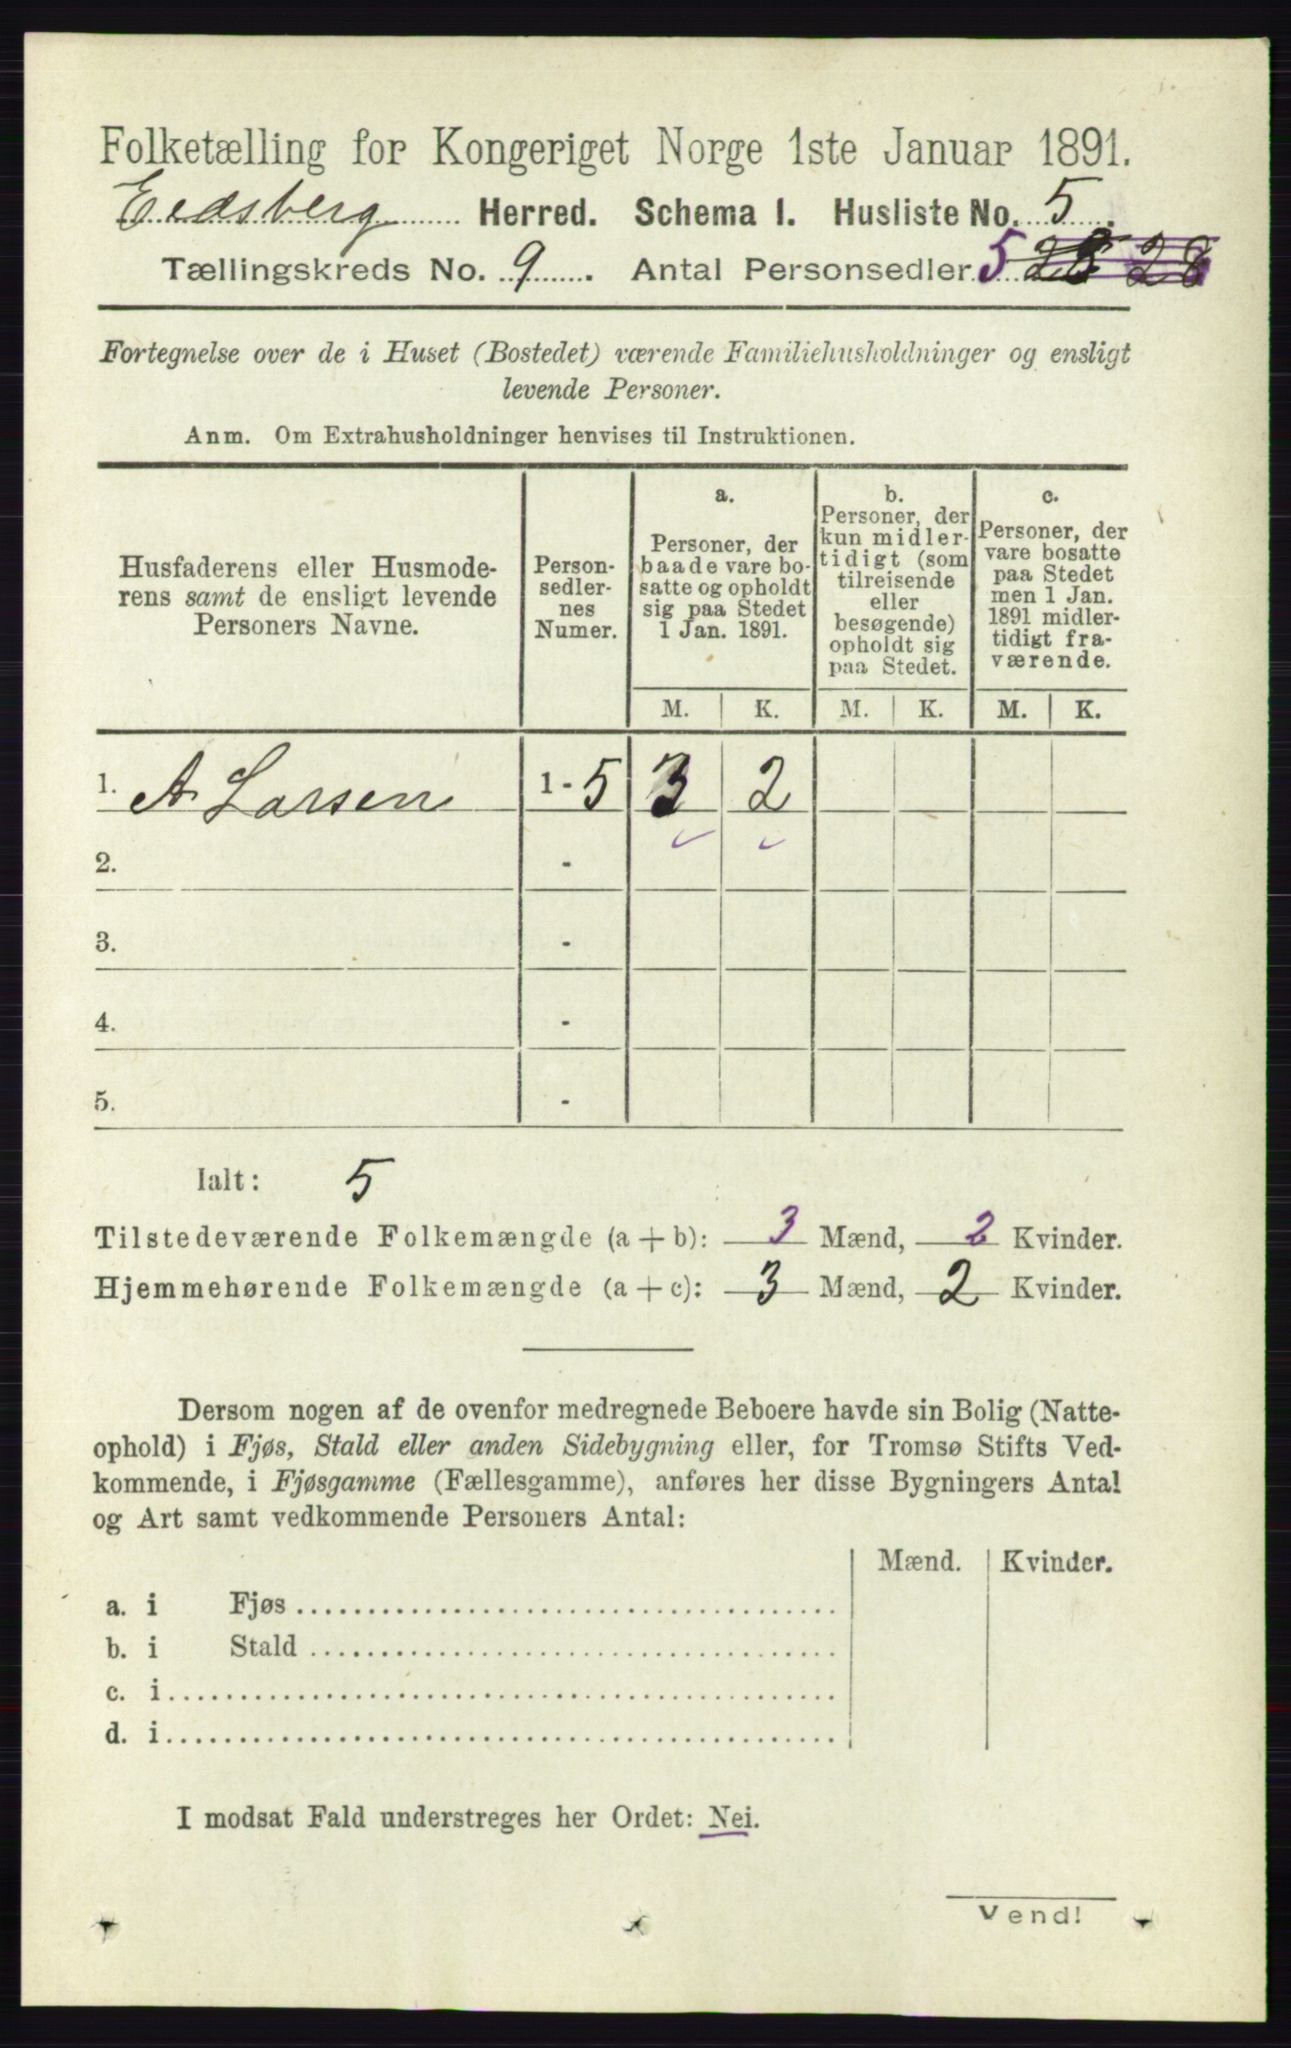 Folketælling for Kongeriget Norge 1ste Januar 1891.
Eidsberg Herred. Schema I. Husliste No. 5.
Tællingskreds No. 9. Antal Personsedler 5 28 28
Fortegnelse over de i Huset (Bostedet) værende Familiehusholdninger og ensligt
levende Personer.
Anm. Om Extrahusholdninger henvises til Instruktionen.
Husfaderens eller Husmode-
rens samt de ensligt levende
Personers Navne.
Person-
sedler-
nes
Numer.
a.
Personer, der
baade vare bo-
satte og opholdt
sig paa Stedet
1 Jan. 1891.
b.
Personer, der
kun midler-
tidigt (som
tilreisende
eller
besøgende)
opholdt sig
paa Stedet.
c.
Personer, der
vare bosatte
paa Stedet
men 1 Jan.
1891 midler-
tidigt fra-
værende.
M. K. M. K. M. K.
1. A. Larsen 1 - 5 3 2
2. -
3. -
4. -
5. -
Ialt: 5
Tilstedeværende Folkemængde (a + b): 3 Mænd, 2 Kvinder.
Hjemmehørende Folkemængde (a + c): 3 Mænd, 2 Kvinder.
Dersom nogen af de ovenfor medregnede Beboere havde sin Bolig (Natte-
ophold) i Fjøs, Stald eller anden Sidebygning eller, for Tromsø Stifts Ved-
kommende, i Fjøsgamme (Fællesgamme), anføres her disse Bygningers Antal
og Art samt vedkommende Personers Antal:
Mænd. Kvinder.
a. i Fjøs
b. i Stald
c. i
d. i
I modsat Fald understreges her Ordet: Nei.
Vend!